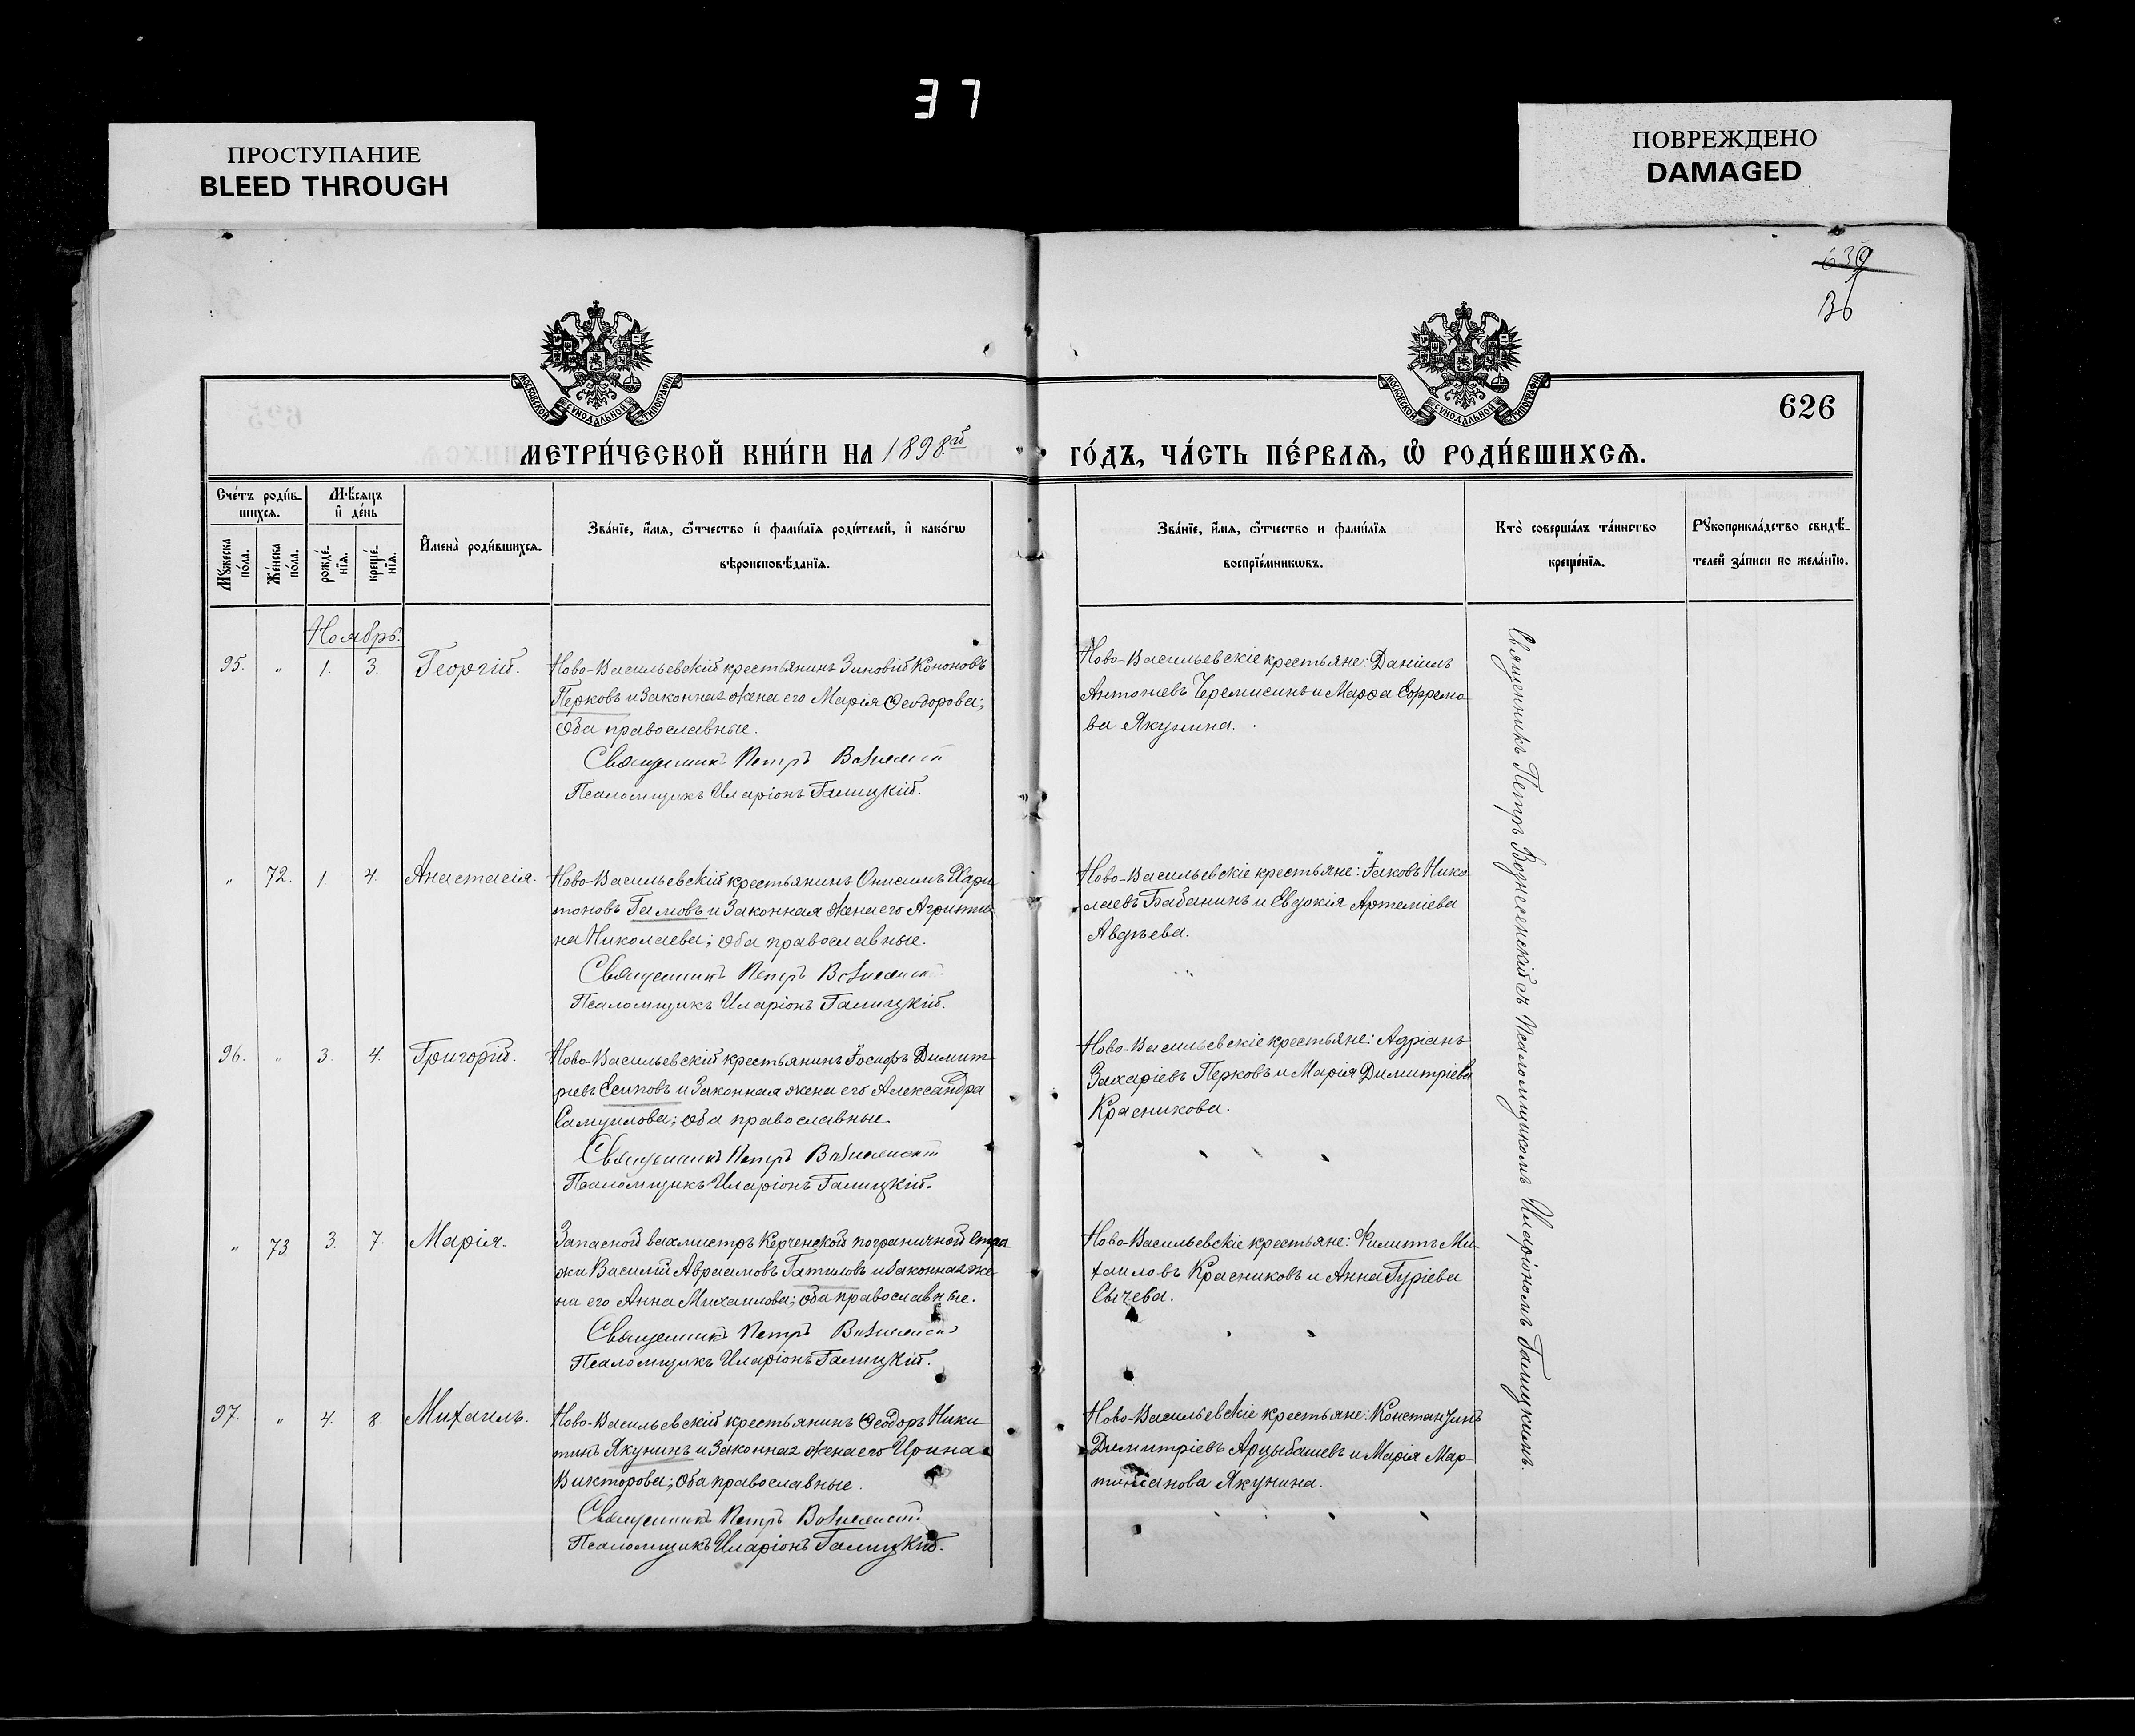 37
ПРОСТУПАНИЕ
BLEED THROUGH
ПОВРЕЖДЕНО
DAMAGED
639
36
626
МОСКОВСКОЙ СѴНОДАЛЬНОЙ ТИПОГРАФІИ
МОСКОВСКОЙ СѴНОДАЛЬНОЙ ТИПОГРАФІИ
МЕТРИ́ЧЕСКОЙ КНИ́ГИ НА 1898й ГО́ДЪ, ЧА́СТЬ ПЕ́РВАѦ, Ѽ РОДИ́ВШИХСѦ.
Сче́тъ роди́в-
шихсѧ.
Мꙋ́жеска
по́ла.
Же́нска
по́ла.
Мѣ́сѧцъ
и҆ де́нь
рожде́-
нїѧ.
креще́-
нїѧ.
И҆мена̀ роди́вшихсѧ.
Зва́нїе, и҆́мѧ, ѻ҆́тчество и҆ фами́лїѧ роди́телей, и҆ како́гѡ
вѣроисповѣ́данїѧ.
Зва́нїе, и҆́мѧ, ѻ҆́тчество и фами́лїѧ
воспрїе́мникѡвъ.
Кто̀ соверша́лъ та́инство
креще́нїѧ.
Рꙋкоприкла́дство свидѣ́-
телей за́писи по жела́нїю.
Ноябрь.
95. " 1. 3. Георгій.
Ново-Васильевскій крестьянинъ Зиновій Кононовъ
Перковъ и законная жена его Марія Ѳеодорова;
оба православные.
Священникъ Петръ Вознесенскій
Псаломщикъ Иларіонъ Галицкій.
Ново-Васильевскіе крестьяне: Даніилъ
Антоніевъ Черемисинъ и Марѳа Ефремо-
ва Якунина.
" 72. 1. 4. Анастасія.
Ново-Васильевскій крестьянинъ Онисимъ Хари-
тоновъ Гамовъ и законная жена его Агриппи-
на Николаева; оба православные.
Священникъ Петръ Вознесенскій
Псаломщикъ Иларіонъ Галицкій.
Ново-Васильевскіе крестьяне: Іаковъ Нико-
лаевъ Бабанинъ и Евдокія Артеміева
Авдѣева.
96. " 3. 4. Григорій.
Ново-Васильевскій крестьянинъ Іосифъ Димит-
ріевъ Есиповъ и законная жена его Александра
Самуилова; оба православные.
Священникъ Петръ Вознесенскій
Псаломщикъ Иларіонъ Галицкій.
Ново-Васильевскіе крестьяне: Адріанъ
Захаріевъ Перковъ и Марія Димитріева
Красникова.
" 73 3. 7. Марія.
Запасной вахмистръ Керченской пограничной стра-
жи Василій Авраамовъ Гатиловъ и законная же-
на его Анна Михаилова; оба православные.
Священникъ Петръ Вознесенскій
Псаломщикъ Иларіонъ Галицкій.
Ново-Васильевскіе крестьяне: Филиппъ Ми-
хаиловъ Красниковъ и Анна Гуріева
Сычева.
97. " 4. 8. Михаилъ.
Ново-Васильевскій крестьянинъ Ѳеодоръ Ники-
тинъ Якунинъ и законная жена его Ирина
Викторова; оба православные.
Священникъ Петръ Вознесенскій
Псаломщикъ Иларіонъ Галицкій.
Ново-Васильевскіе крестьяне: Константинъ
Димитріевъ Арцыбашевъ и Марія Мар-
тиніанова Якунина.
Священникъ Петръ Вознесенскій съ Псаломщикомъ Иларіономъ Галицкимъ.